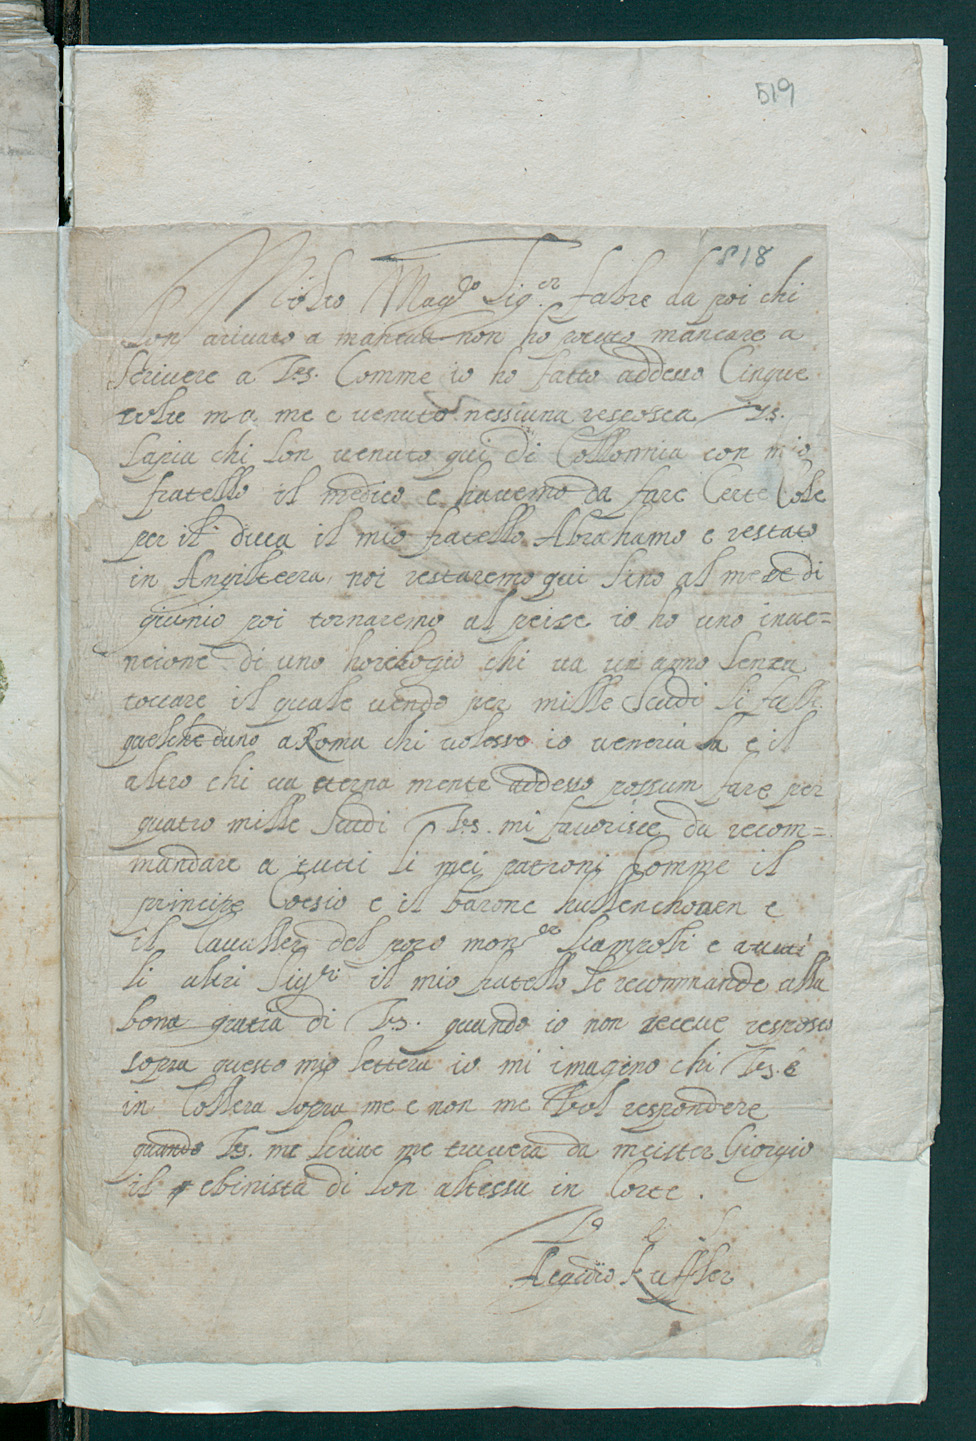 519
518
Molto Mag^co Sig.^or fabre da poi chi
Son arivato a mantua non ho mancare a
Scrivere a V.S. Comme io ho fatto addesso Cinque
volte ma me e venuto nessiuna resposta V.S.
Sapia chi Son venuto qui di Collonnia con mio
fratello il medico e havemo da fare Certe Cose
per il duca il mio fratello Abrahamo e restato
in Angilteera, noi restaremo qui Sino al mese di
giunio poi tornaremo al peise io ho uno inve=
ncione di uno horologio chi va un anno Senza
toccare il quale vendo per mille Scudi Si fusse
quelche duno a Roma chi volesse io veneria la e il
altro chi va eterna mente addesso possum fare per
quatro mille Scudi V.S. mi favorisce da recom=
mandare a tutti li mei patroni Comme il
principe Coesio e il barone hullenchoven e
il Cavaller del pozo mon^or Ciampolli e tutti
li altri Sig^ri il mio fratello Se recommande alla
bona gratia di V.S. quando io non receve resposta
sopra questo mio lettera io mi imagino chi V.S. é
in Collera Sopra me e non me Vol respondere
quando V.S. me Scrive me truvera da meister Giorgio
il ebinista di Son altessa in Corte.
Aegidio kuffler